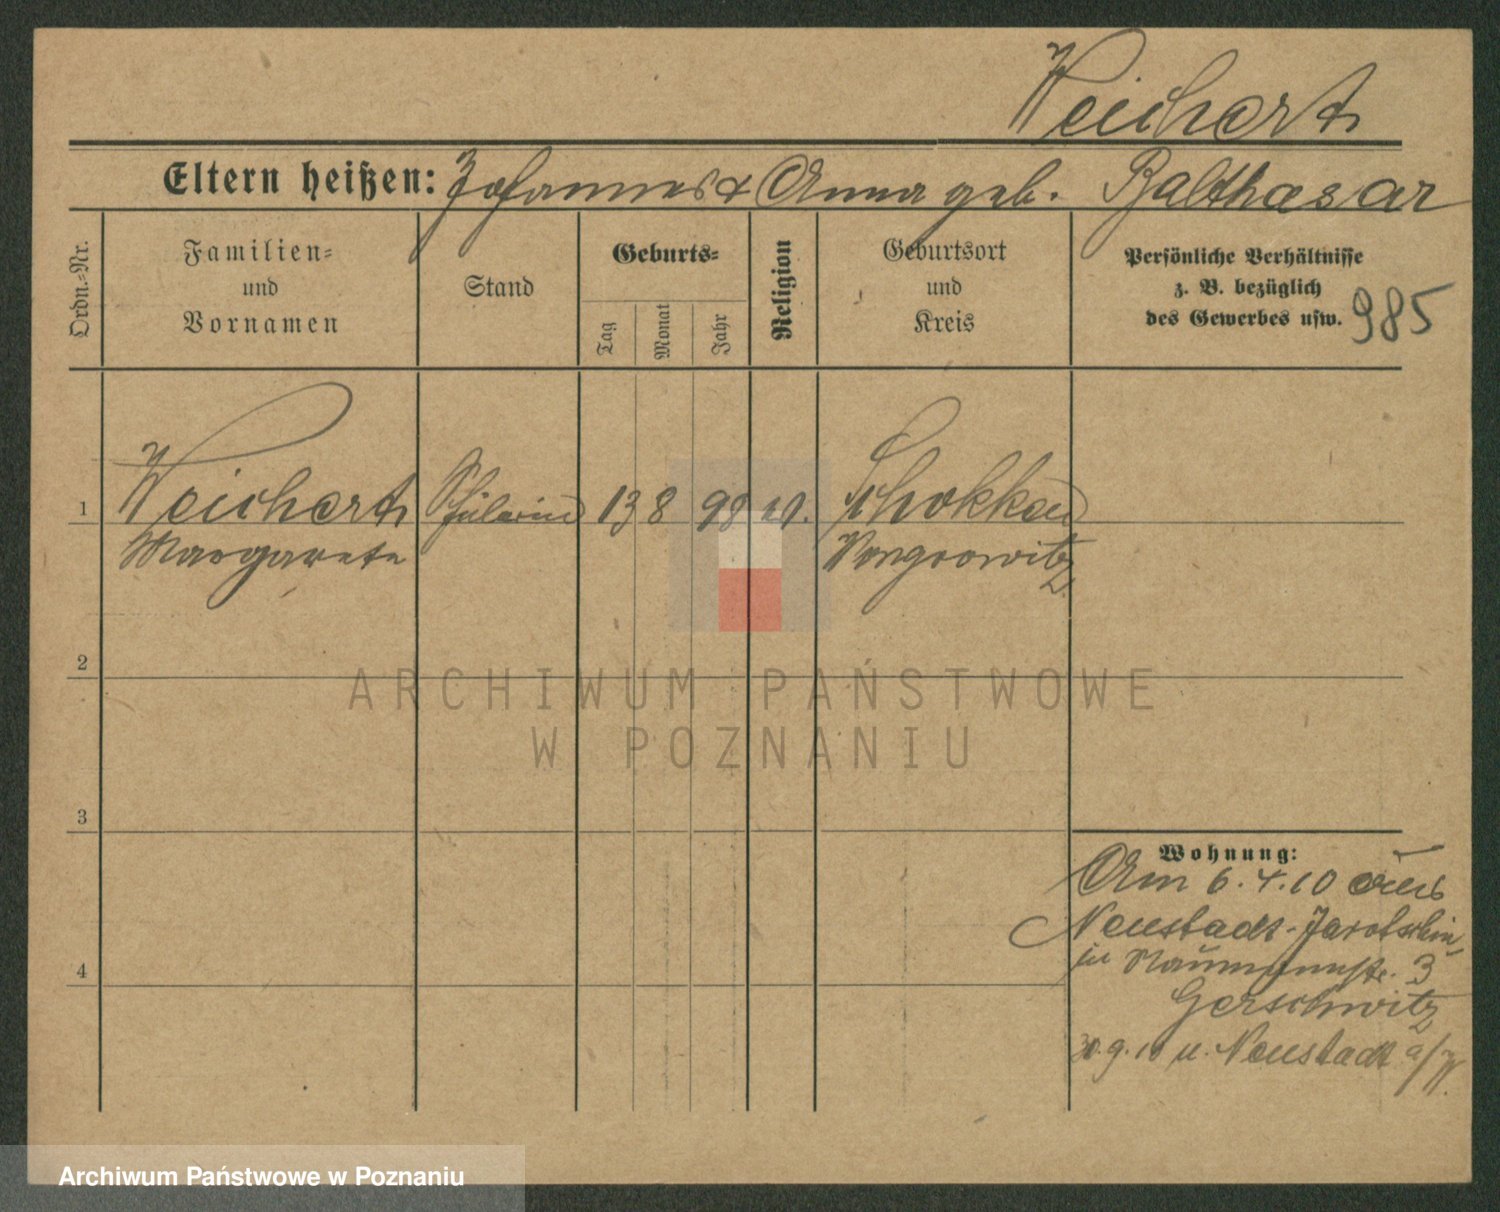 Weichert
Eltern heißen: Johannes & Anna geb. Balthasar
Ordn.-Nr.
Familien- und Vornamen
Stand
Geburts-
Tag
Monat
Jahr
Religion
Geburtsort und Kreis
Persönliche Verhältnisse
z. B. bezüglich
des Gewerbes usw. 985
1
Weichert Schülerin 13 8 98 Schokken
Margarete Wongrowitz
2
ARCHIWUM PAŃSTWOWE
W POZNANIU
3
Wohnung:
Am 6.4.10 aus
Neustadt-Jarotschin
in Naumannstr. 3
Gerschwitz
4
30.9.10 n. Neustadt a/W.
Archiwum Państwowe w Poznaniu